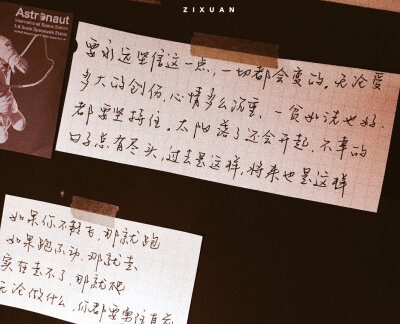 ZIXUAN
Astronaut
International Space Station
1/4 Scale Spacewalk Statue
要永远坚信这一点,一切都会变的。无论受
多大的创伤,心情多么沉重,一贫如洗也好,
都要坚持住。太阳落了还会升起,不幸的
日子总有尽头,过去是这样,将来也是这样
如果你不能飞,那就跑
如果跑不动,那就走
实在走不了,那就爬
无论做什么,你都要勇往直前